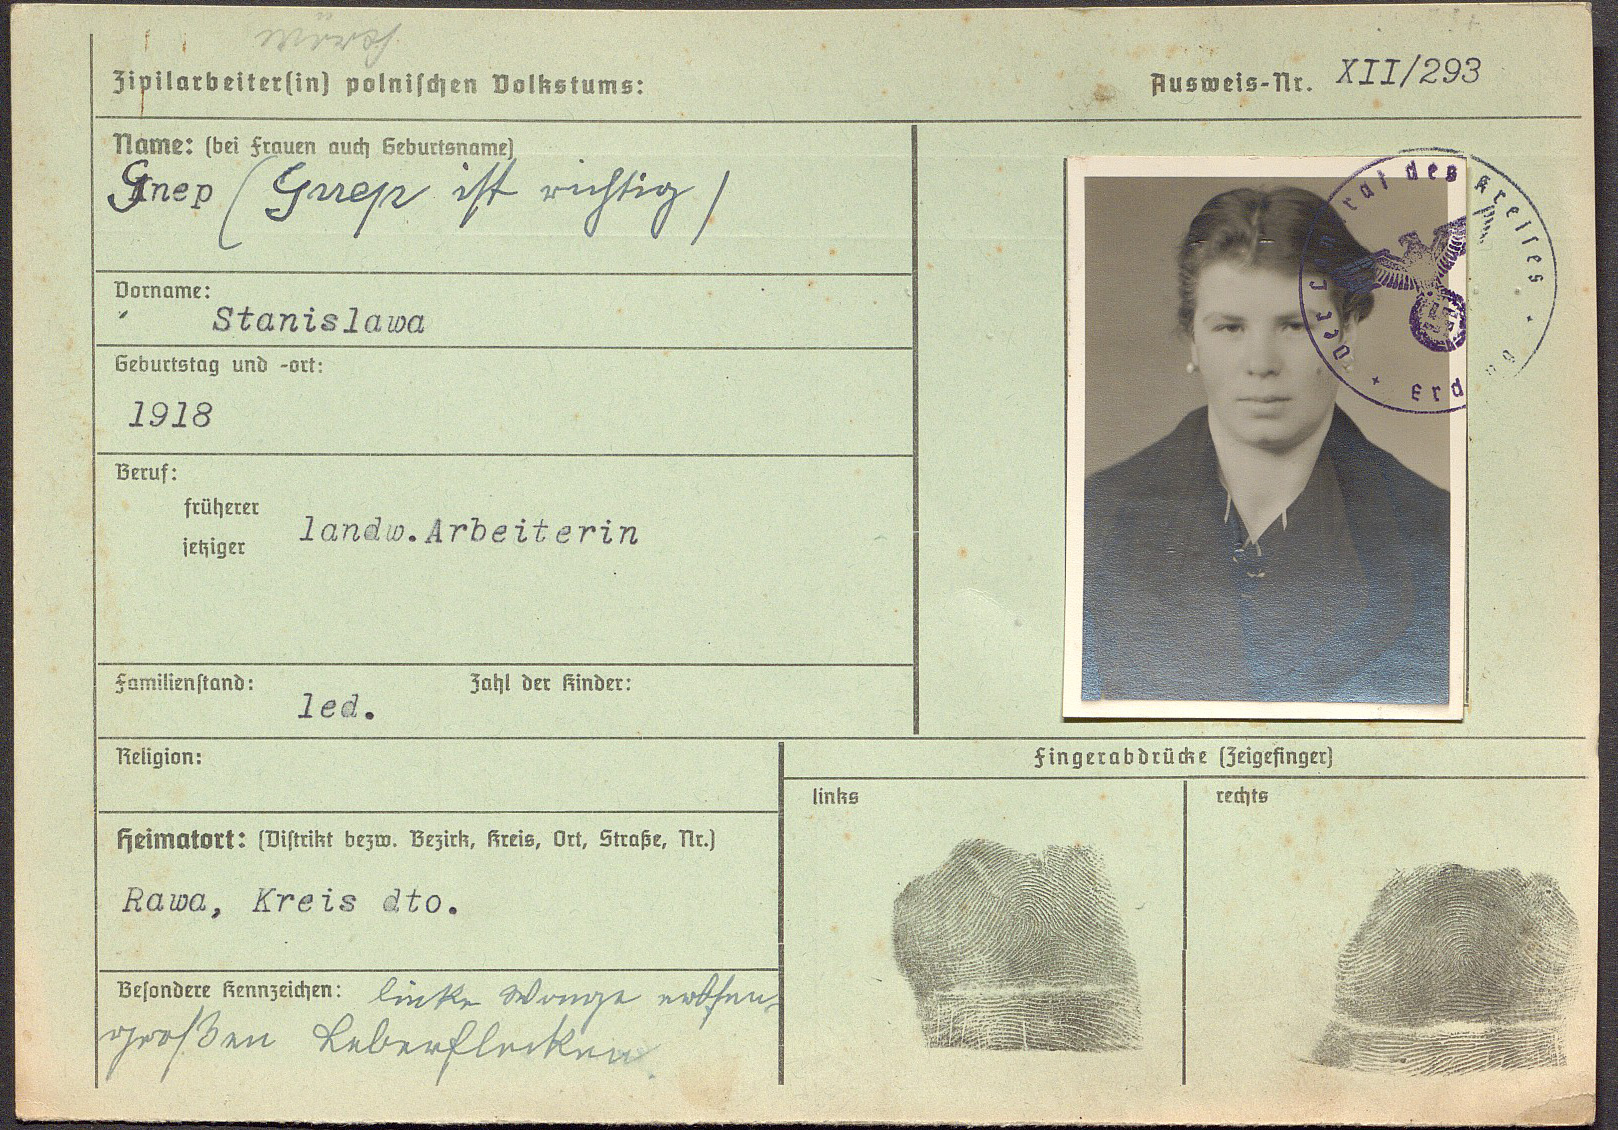 Zivilarbeiter(in) polnischen Volkstums:
Ausweis-Nr. XII/293
Name: (bei Frauen auch Geburtsname)
Gnep (Gnep ist richtig)
Vorname:
Stanislawa
Geburtstag und -ort:
1918
Beruf:
früherer
jetziger
landw.Arbeiterin
Familienstand:
led.
Zahl der Kinder:
Religion:
Heimatort: (Distrikt bezw. Bezirk, Kreis, Ort, Straße, Nr.)
Rawa, Kreis dto.
Besondere Kennzeichen: linke Wange erbsen-
großen Leberflecken.
Der Landrat des Kreises
Erding
Fingerabdrücke (Zeigefinger)
links
rechts